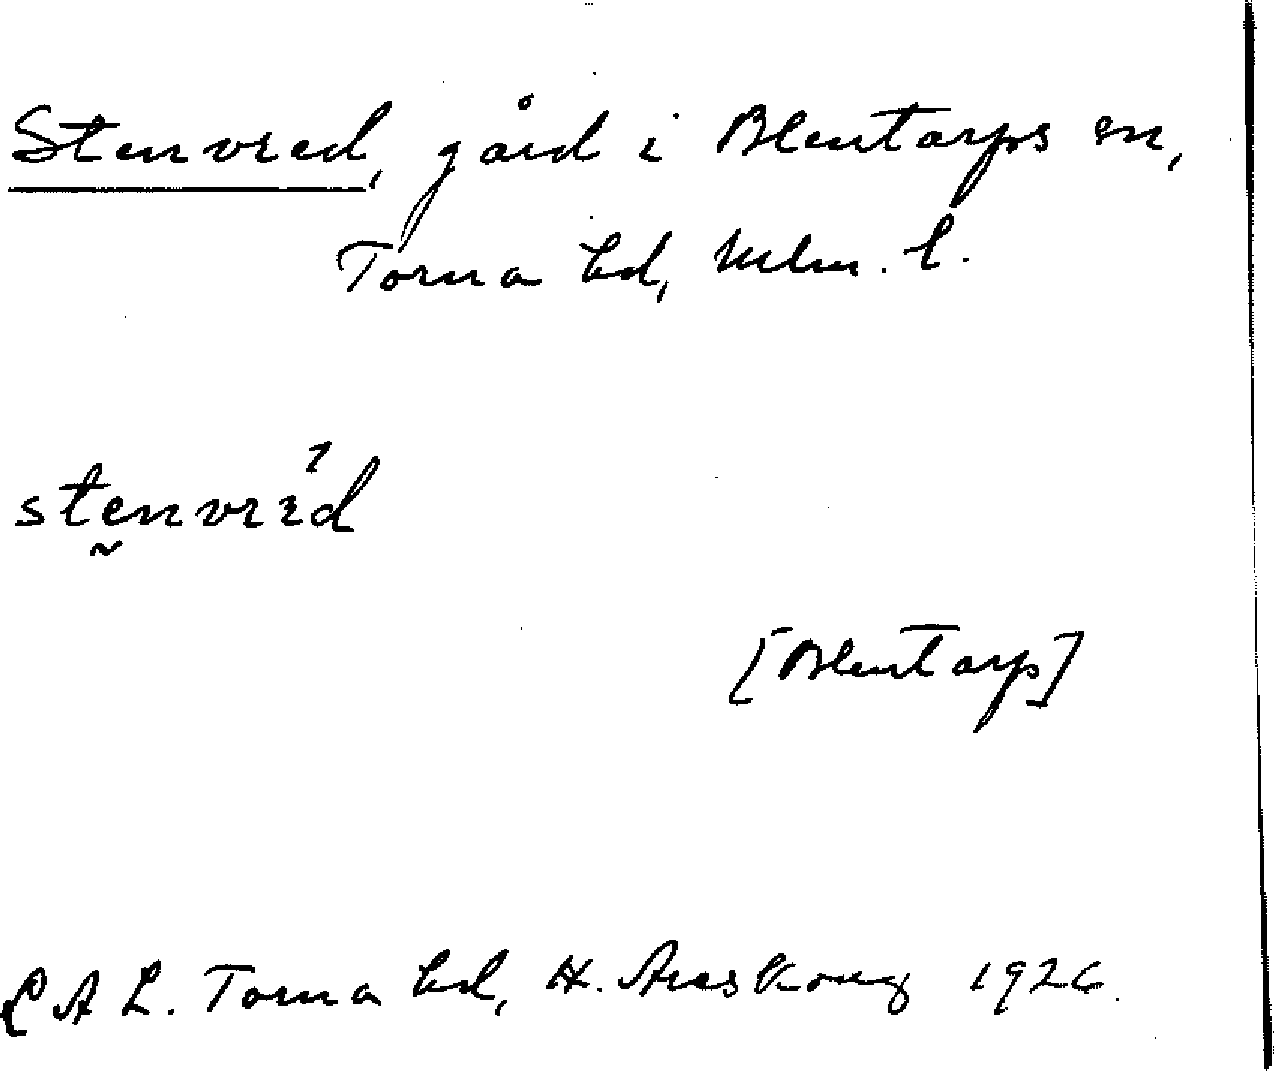 Stenvred, gård i Blentarps sn,
Torna hd, Mlm. l.
stenvrid
[Blentarp]
LAL. Torna hd, H. Areskoug 1926.